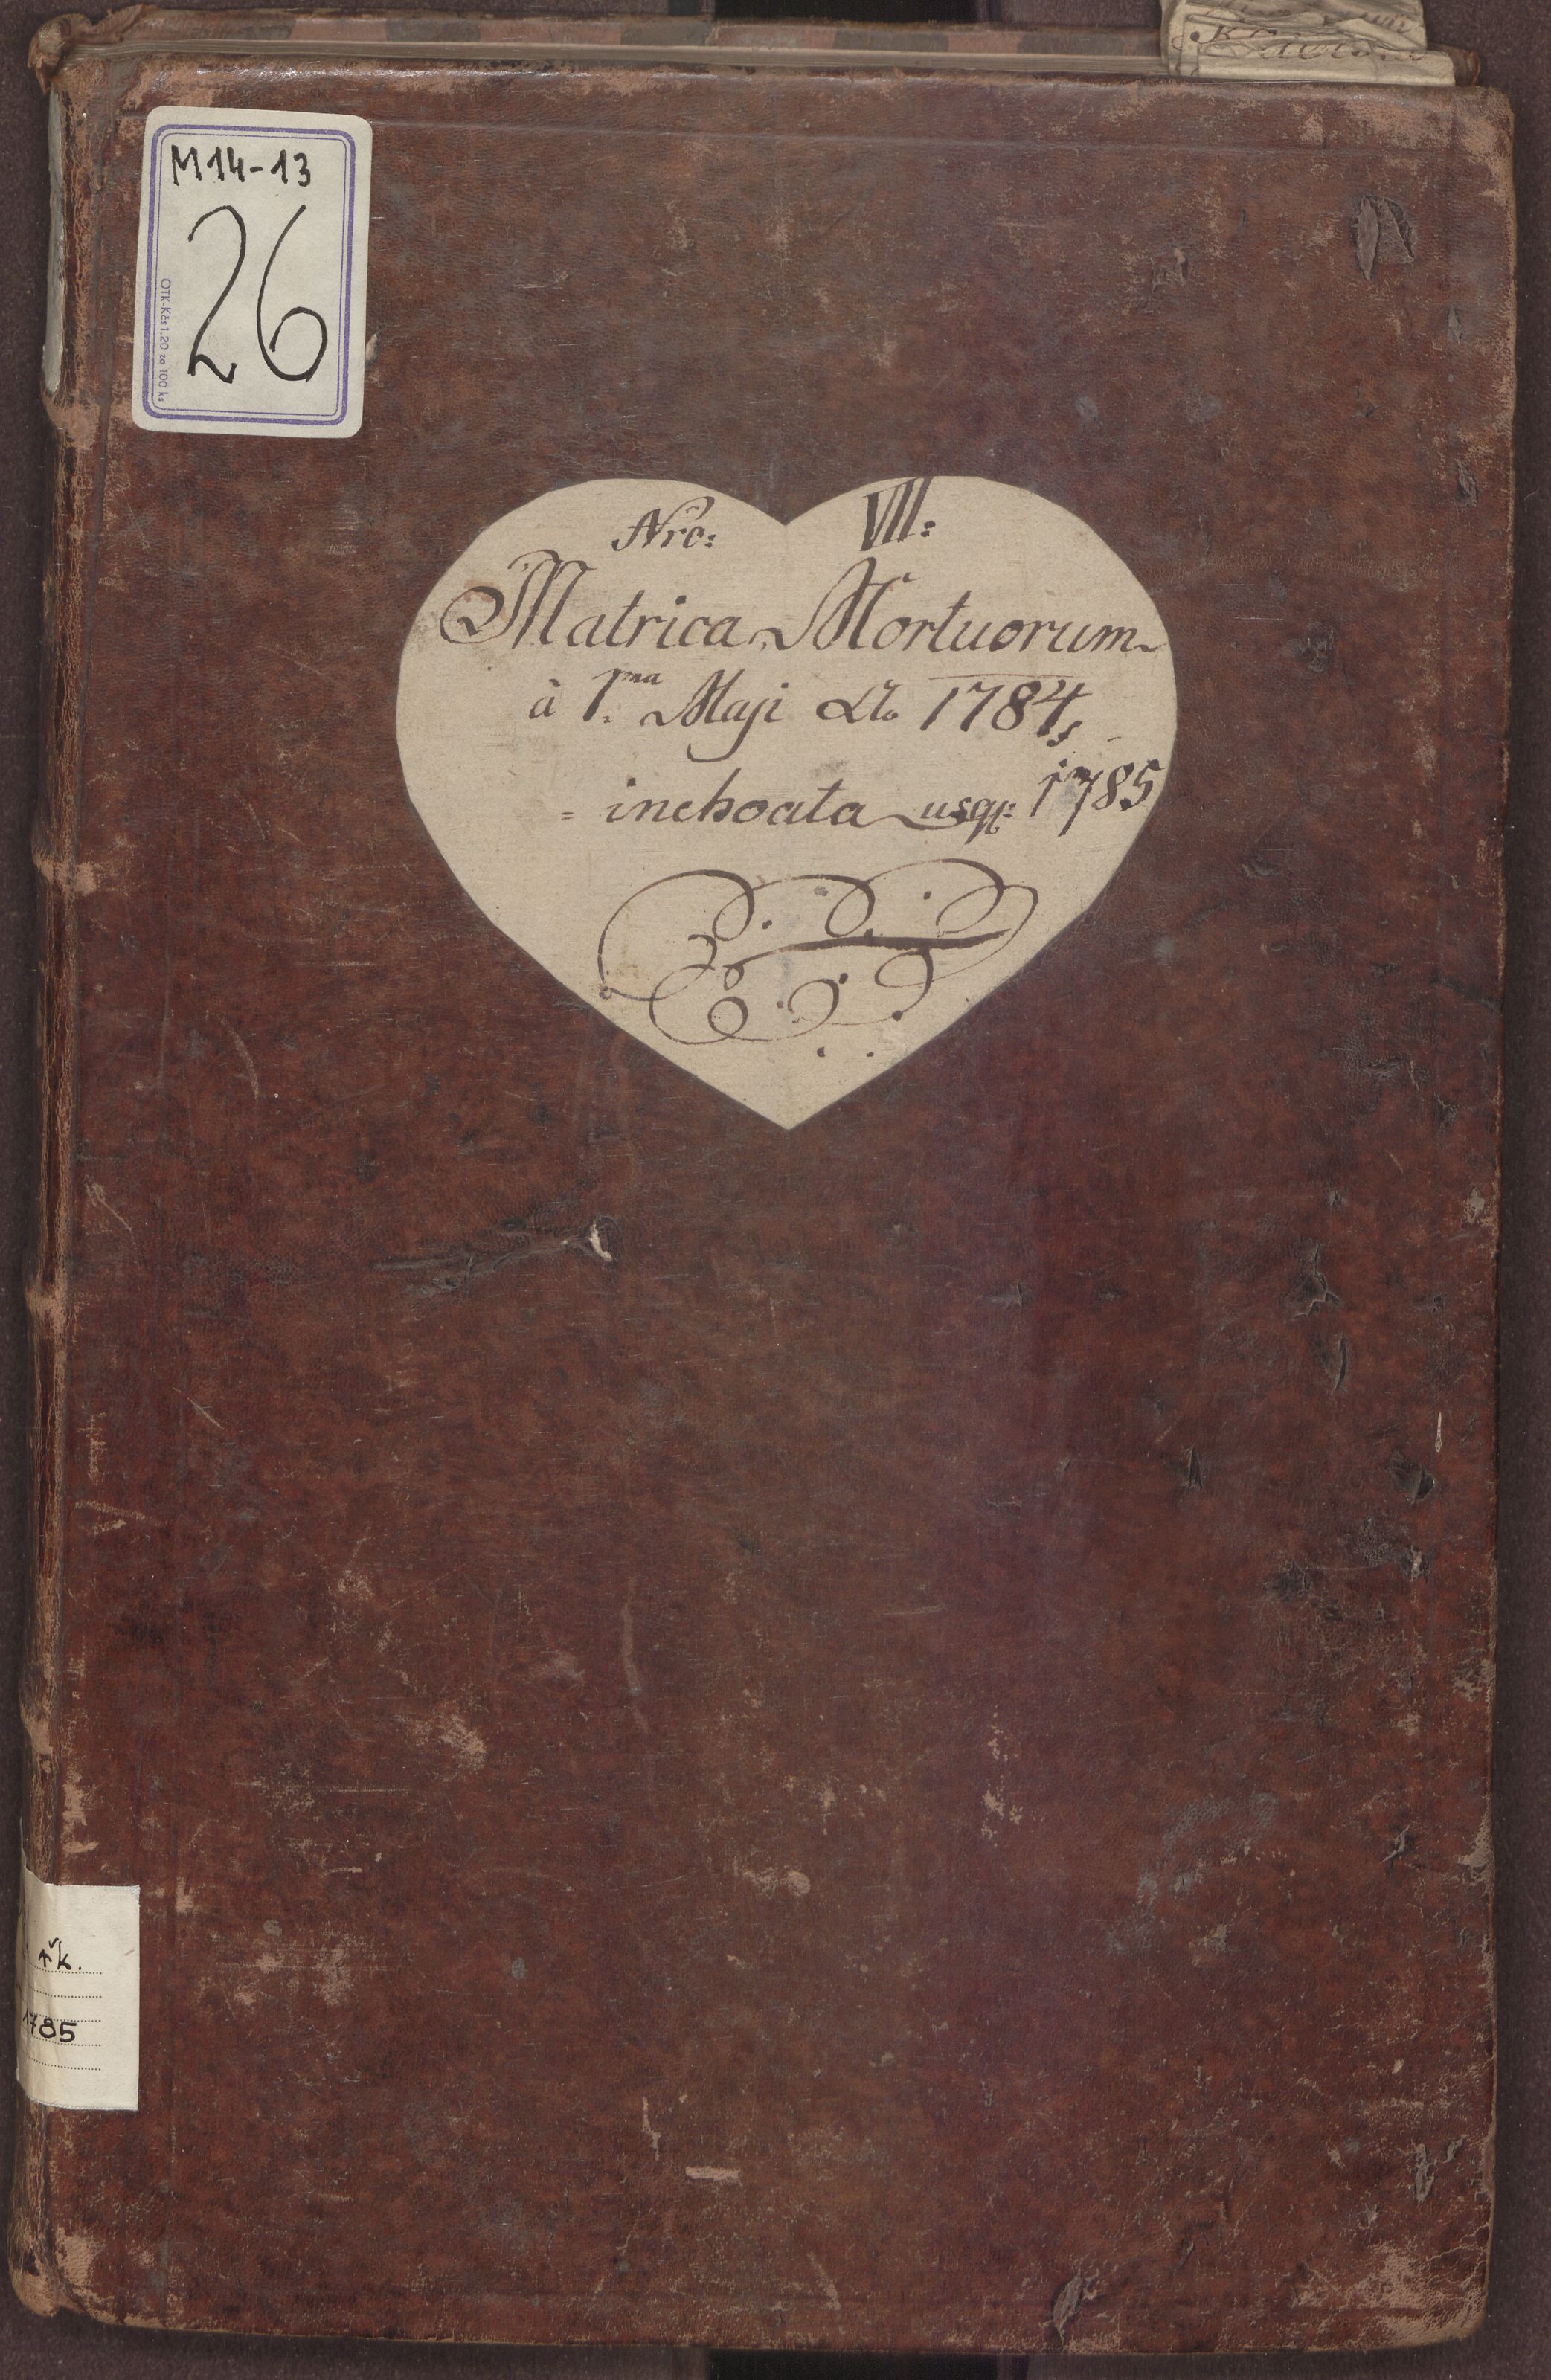 M14-13
26
OTK-Kčs 1,20 za 100 ks
Nro: VII:
Matrica Mortuorum
à 1.ma Maji Ao 1784
inchoata usq: 1785
řk.
1785